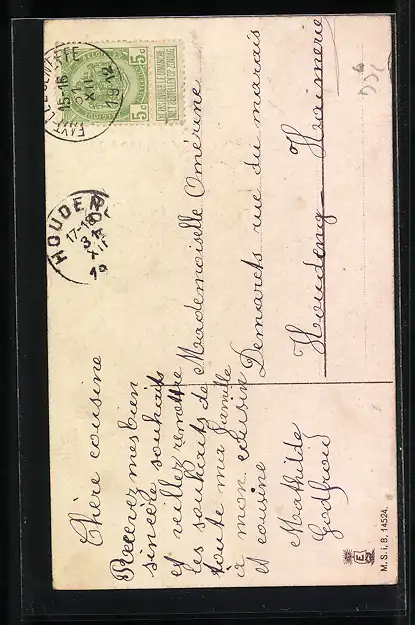 Chère cousine
Recevez mes bien
sincère souhaits
et veillez remettre
les souhaits de
toute ma famille
à mon cousin
et cousine
Mathilde
Godfroid
M.S.i.B. 14524.
Mademoiselle Omérine
Demarets rue du marais
Houdeng
15-16
31
XII
1912
5c 5c
NE PAS LIVRER LE DIMANCHE
NIET BESTELLEN OP ZONDAG
HOUDENG
17-18
31
XII
19